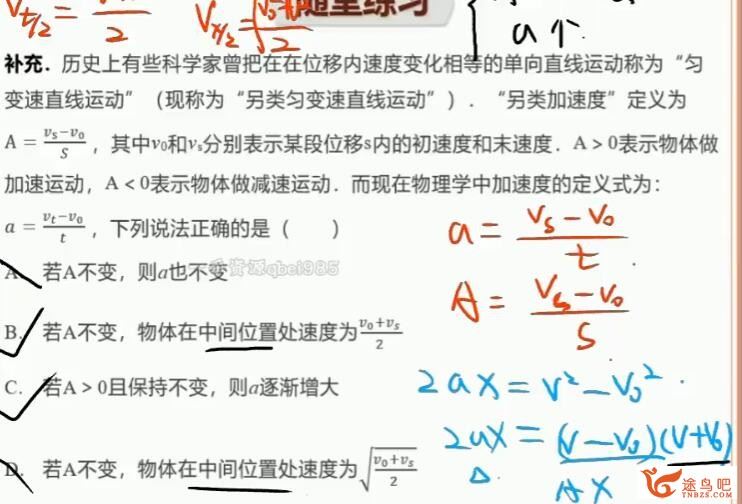 V_{t/2} = /2
V_{x/2} = √ /2
随堂练习
a个
补充．历史上有些科学家曾把在在位移内速度变化相等的单向直线运动称为“匀
变速直线运动”（现称为“另类匀变速直线运动”）．“另类加速度”定义为
A = \frac{v_s-v_0}{S}，其中v₀和vₛ分别表示某段位移s内的初速度和末速度．A＞0表示物体做
加速运动，A＜0表示物体做减速运动．而现在物理学中加速度的定义式为：
a = \frac{v_t-v_0}{t}，下列说法正确的是（　　）
a = \frac{V_s-V_0}{t}
A．若A不变，则a也不变
看资源qbei985
A = \frac{V_s-V_0}{S}
B．若A不变，物体在中间位置处速度为\frac{v_0+v_s}{2}
C．若A＞0且保持不变，则a逐渐增大
2ax = V²-V₀²
2ax = (V-V₀)(V+V₀)
D．若A不变，物体在中间位置处速度为\sqrt{\frac{v_0+v_s}{2}}
△
AX
途鸟吧
TNBZS.COM